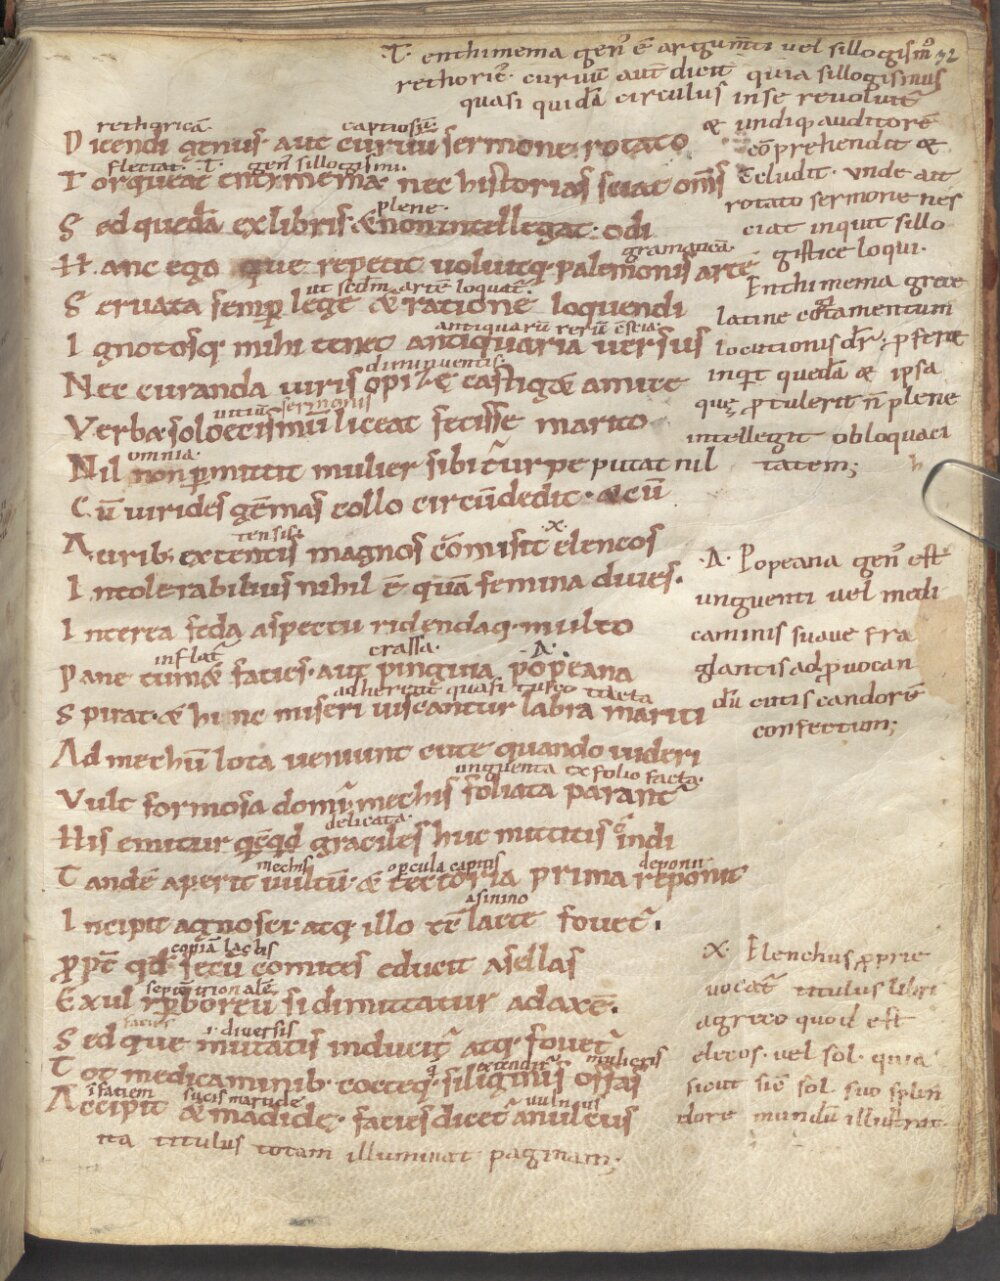 .T. enthimema gen' ē argum̄ti vel sillogism' 32
rethoric'. curuū aut̄ dicit quia sillogismus
quasi quidā circulus in se reuolutꝰ
& undiq; auditorē
cōprehendit &
cludit. vnde ait
rotato sermone nes
ciat inquit sillo
gistice loqui.
Enthimema grece
latine cōtamentum
locutionis dr̄. ꝓferre
inq̄t quedā & ipsa
quę ꝓtulerit n̄ plene
intellegit obloquaci
tatem;
rethoricā. captiosū
Dicendi genus aut curuū sermone rotato
flectat. .T. gen' sillogismi.
Torqueat entimema nec historias sciat om̄s
plene.
Sed quedā ex libris. & non intellegat. odi
gramaticā.
Hanc ego que repetit uoluitq; palemonis artē
ut scd̄m artē loquat̄.
Seruata semp̄ lege & ratione loquendi
antiquarū rerū c̄scia
Ignotosq; mihi tenet antiquaria uersus
diminuentis.
Nec curanda uiris castig& amice
uitiū sermonis
Verba soloecismū liceat fecisse marito
omnia.
Nil non ꝑmittit mulier sibi turpe putat nil
Cū uirides gēmas collo circūdedit. & cū
tensis .X.
Aurib; extentis magnos cōmisit elencos
Intolerabilius nihil ē quā femina diues.
Interea feda aspectu ridendaq; multo
inflat̄ crassa. .A.
Pane tum& facies. aut pinguia popeana
adherent quasi uisco tacta
Spirat. & hinc miseri uiscantur labra mariti
Ad mechū lota ueniunt cute quando uideri
unguenta ex folio facta.
Vult formosa domi. mechis foliata parant̄
delicata.
His emitur q̄cqd̄ graciles huc mittitis indi
mechis opercula capitis deponit
Tandē aperit uultū. & tectoria prima reponit
asinino
Incipit agnoscꝰ atq; illo lacte fouet̄.
copiā lactis
ꝓpt̄ qd̄ secū comites educit asellas
septētrionalē
Exul yperboreū si dimittatur ad axē.
facies .i. diversis
Sed que mutatis inducit̄ atq; fouet̄
q̄ mulieris
Tot medicaminib; coctęq; siliginis offas
ī faciem sucis maride vulnus
Accipit & madidę. facies dicet̄ an ulcus
.A. Popeana gen' est
unguenti uel medi
caminis suaue fra
glantis ad ꝓuocan
dū cutis candorē
confectum;
X. Elenchus ꝓprie
uocat̄ titulus libri
a greco quod est
elcos. vel sol. quia
sicut sic sol suo splen
dore mundū illustrat
ita titulus totam illuminat paginam;